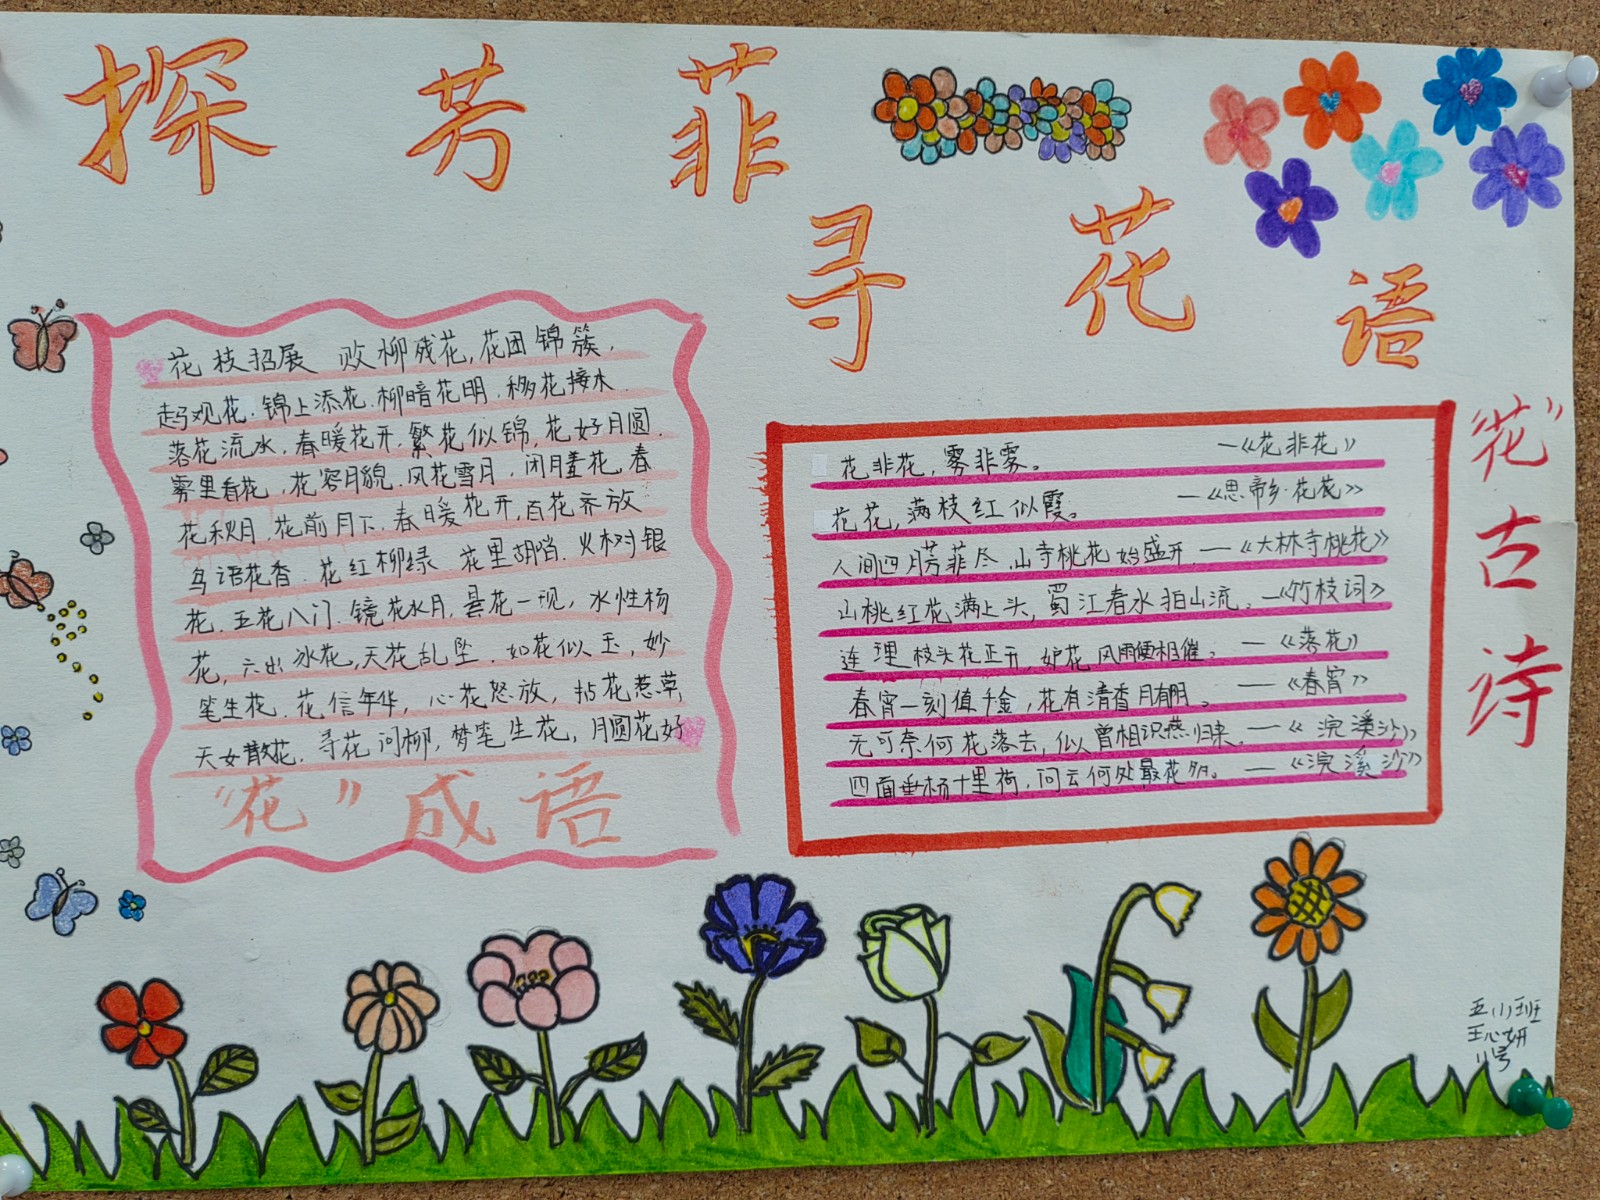 探芳菲
寻花语
花枝招展 败柳残花,花团锦簇,
走马观花.锦上添花.柳暗花明.移花接木.
落花流水,春暖花开.繁花似锦,花好月圆.
雾里看花,花容月貌.风花雪月,闭月羞花,春
花秋月,花前月下,春暖花开,百花齐放
鸟语花香.花红柳绿 花里胡哨.火树银
花.五花八门.镜花水月,昙花一现,水性杨
花,六出冰花,天花乱坠.如花似玉,妙
笔生花.花信年华,心花怒放,拈花惹草,
天女散花.寻花问柳,梦笔生花,月圆花好
“花”成语
花非花,雾非雾。 —《花非花》
花花,满枝红似霞。 —《思帝乡·花花》
人间四月芳菲尽.山寺桃花始盛开 —《大林寺桃花》
山桃红花满上头,蜀江春水拍山流。—《竹枝词》
连理枝头花正开,妒花风雨便相催。 —《落花》
春宵一刻值千金,花有清香月有阴。 —《春宵》
无可奈何花落去,似曾相识燕归来.—《浣溪沙》
四面垂杨十里荷,问云何处最花多。 —《浣溪沙》
“花”古诗
五(1)班
王心妍
11号